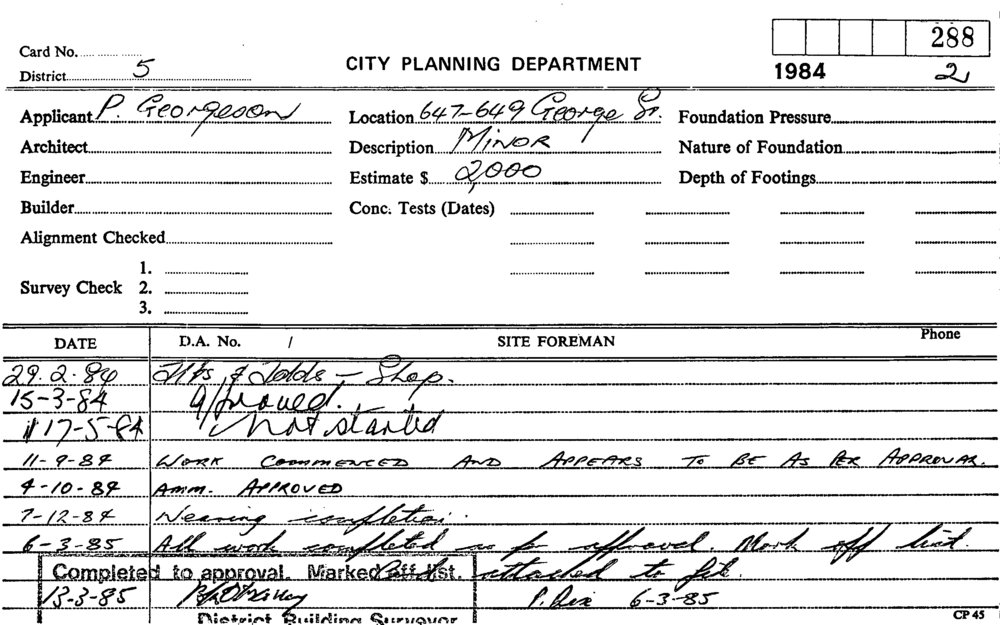 288
Card No.
District 5
CITY PLANNING DEPARTMENT
1984 2
Applicant P. Georgeson
Location 647-649 George St.
Foundation Pressure
Architect
Description Minor
Nature of Foundation
Engineer
Estimate $ 2,000
Depth of Footings
Builder
Conc. Tests (Dates)
Alignment Checked
Survey Check
1.
2.
3.
DATE D.A. No. / SITE FOREMAN Phone
29.2.84 Alts & Adds – Shop.
15-3-84 approved.
17-5-84 Not started
11-9-84 WORK COMMENCED AND APPEARS TO BE AS PER APPROVAL.
4-10-84 AMM. APPROVED
7-12-84 Nearing completion.
6-3-85 All work completed as per approval. Mark off list.
Completed to approval. Marked off list.
attached to file.
13-3-85
6-3-85
District Building Surveyor
CP 45